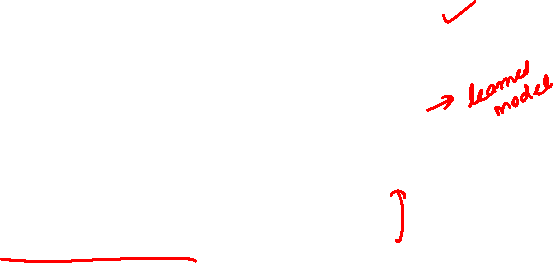 → learned
model